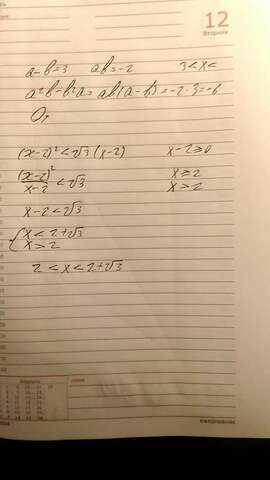 12
Вторник
a-b=3 ab=-2 3<x<
a²b-b²a=ab(a-b)=-2·3=-6
От
(x-2)²<√3(x-2) x-2≥0
(x-2)²/x-2<√3 x≥2
x>2
x-2<√3
{x<2+√3
x>2
2<x<2+√3